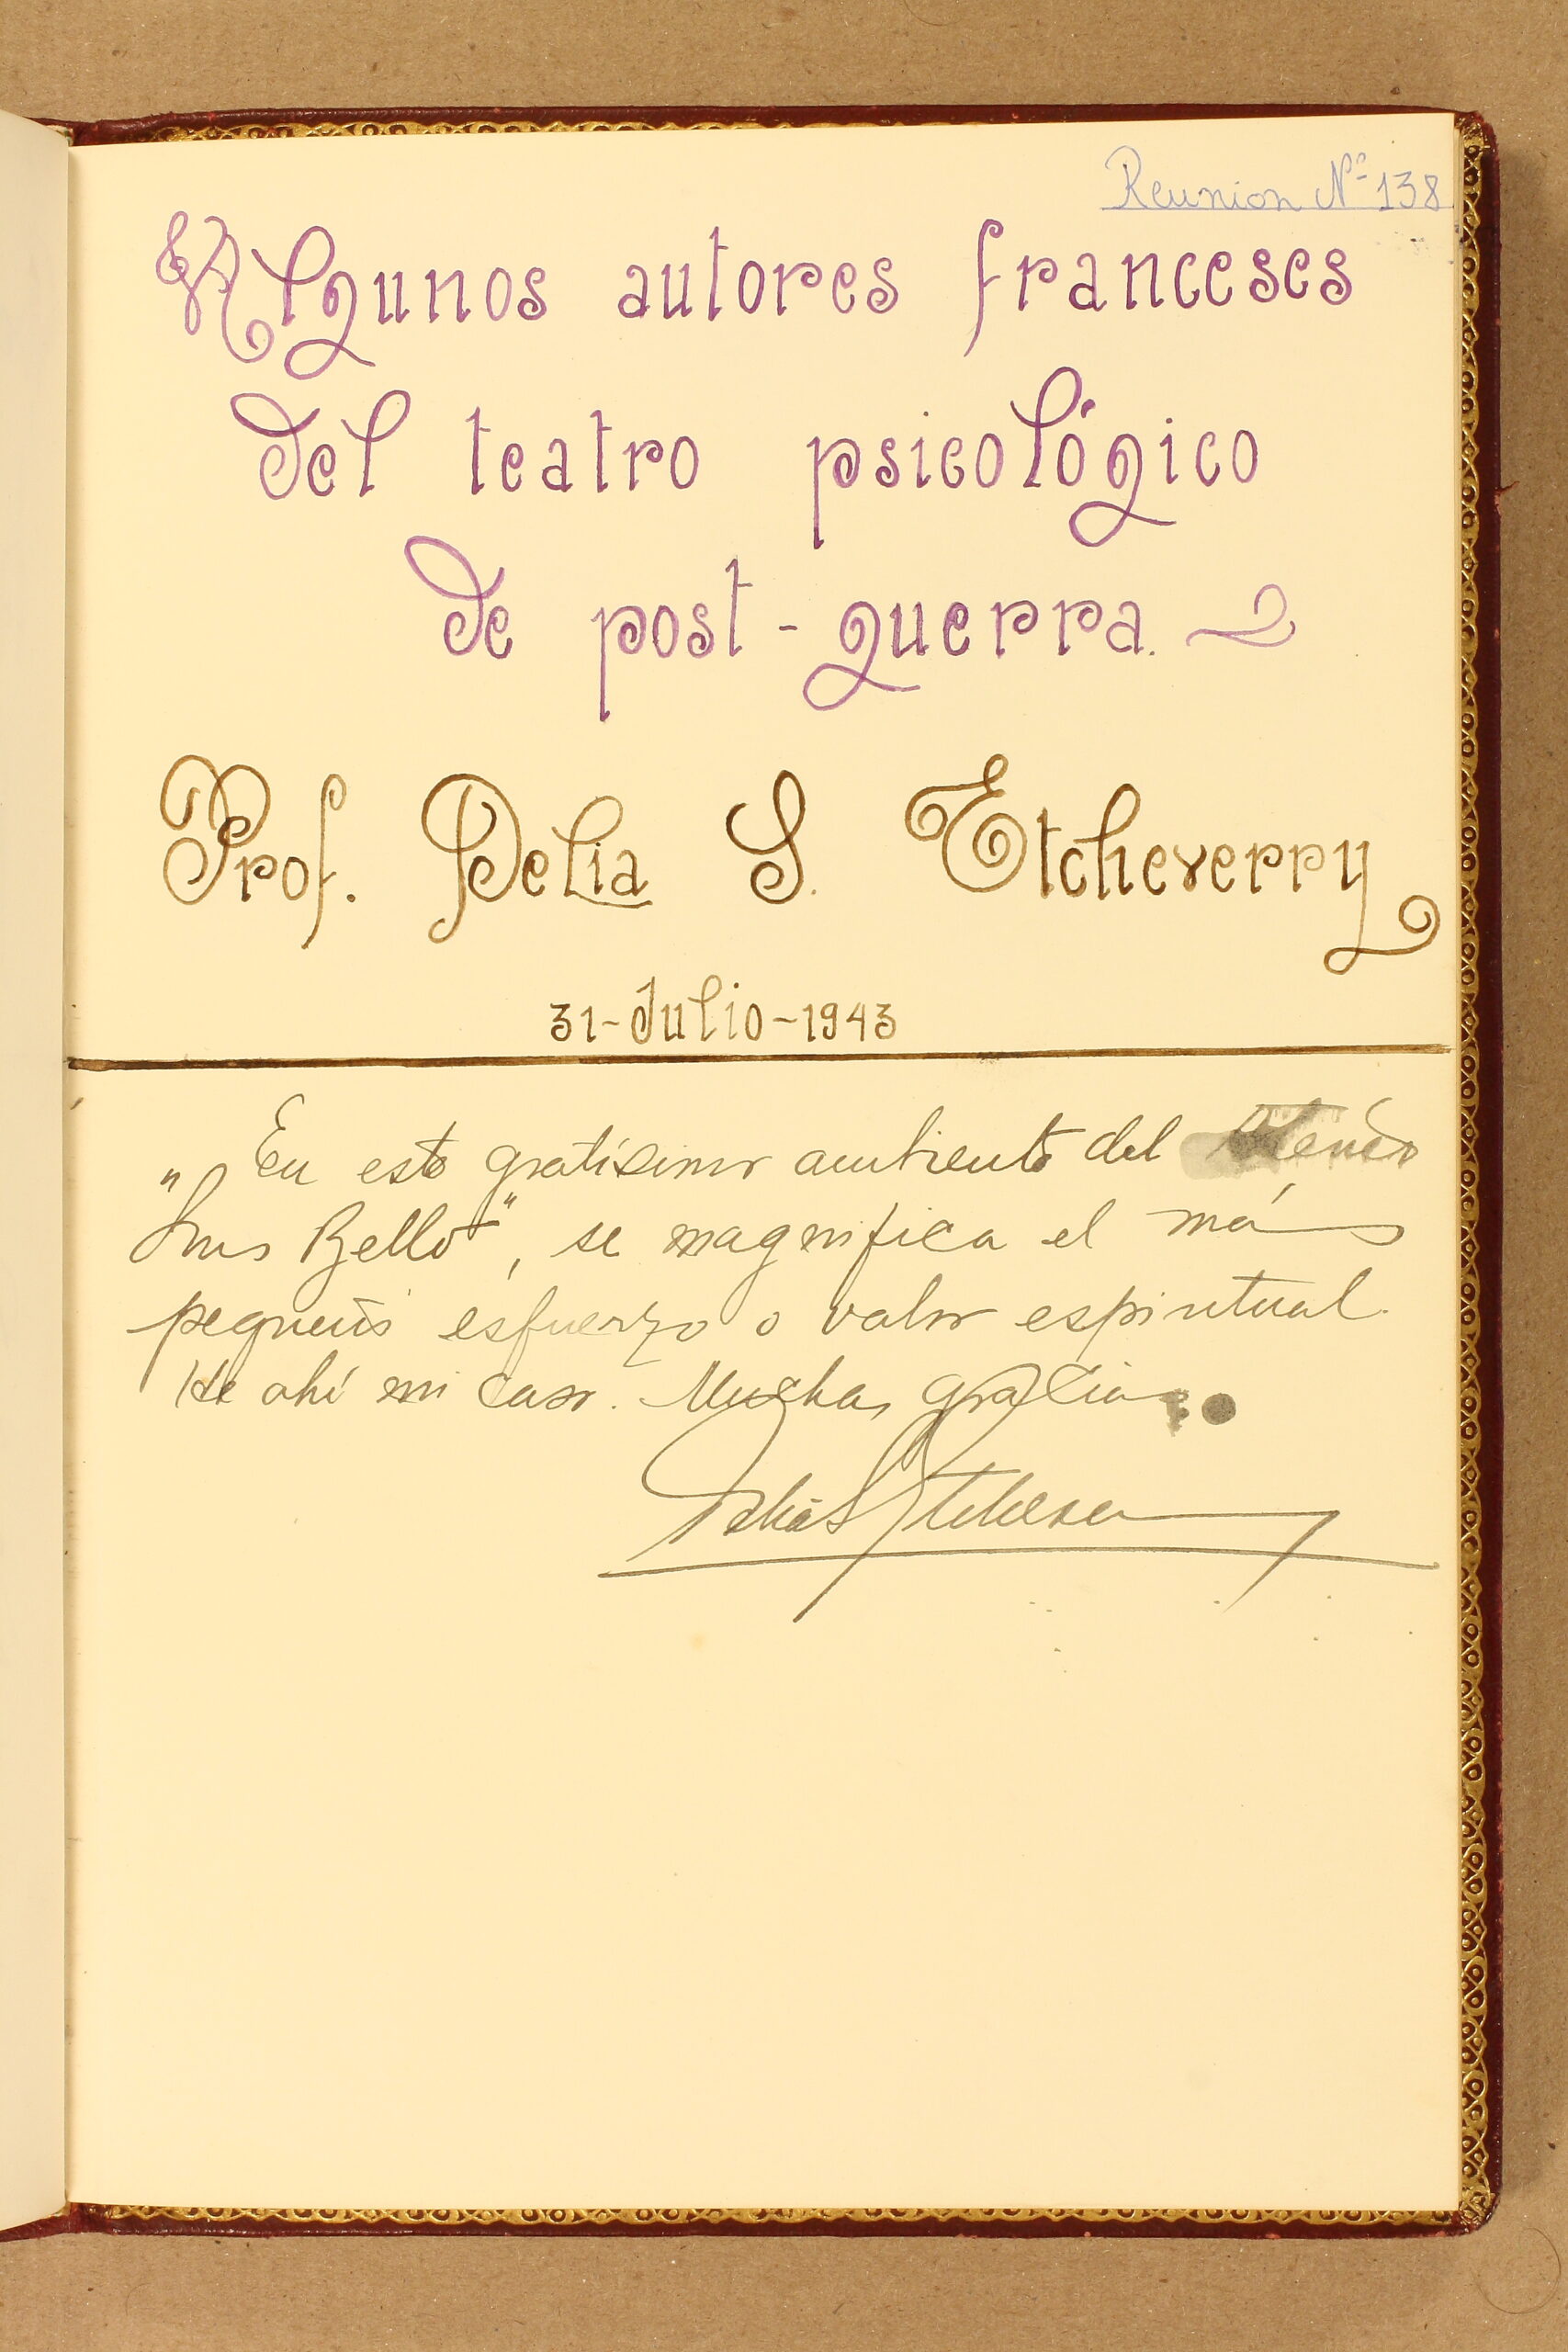 Reunion Nº 138
Algunos autores franceses
del teatro psicológico
de post-guerra.
Prof. Delia S. Etcheverry
31-Julio-1943
En este gratísimo ambiente del Ateneo
"Luis Bello", se magnifica el más
pequeño esfuerzo o valor espiritual.
He ahí mi caso. Muchas gracias.
Delia S. Etcheverry